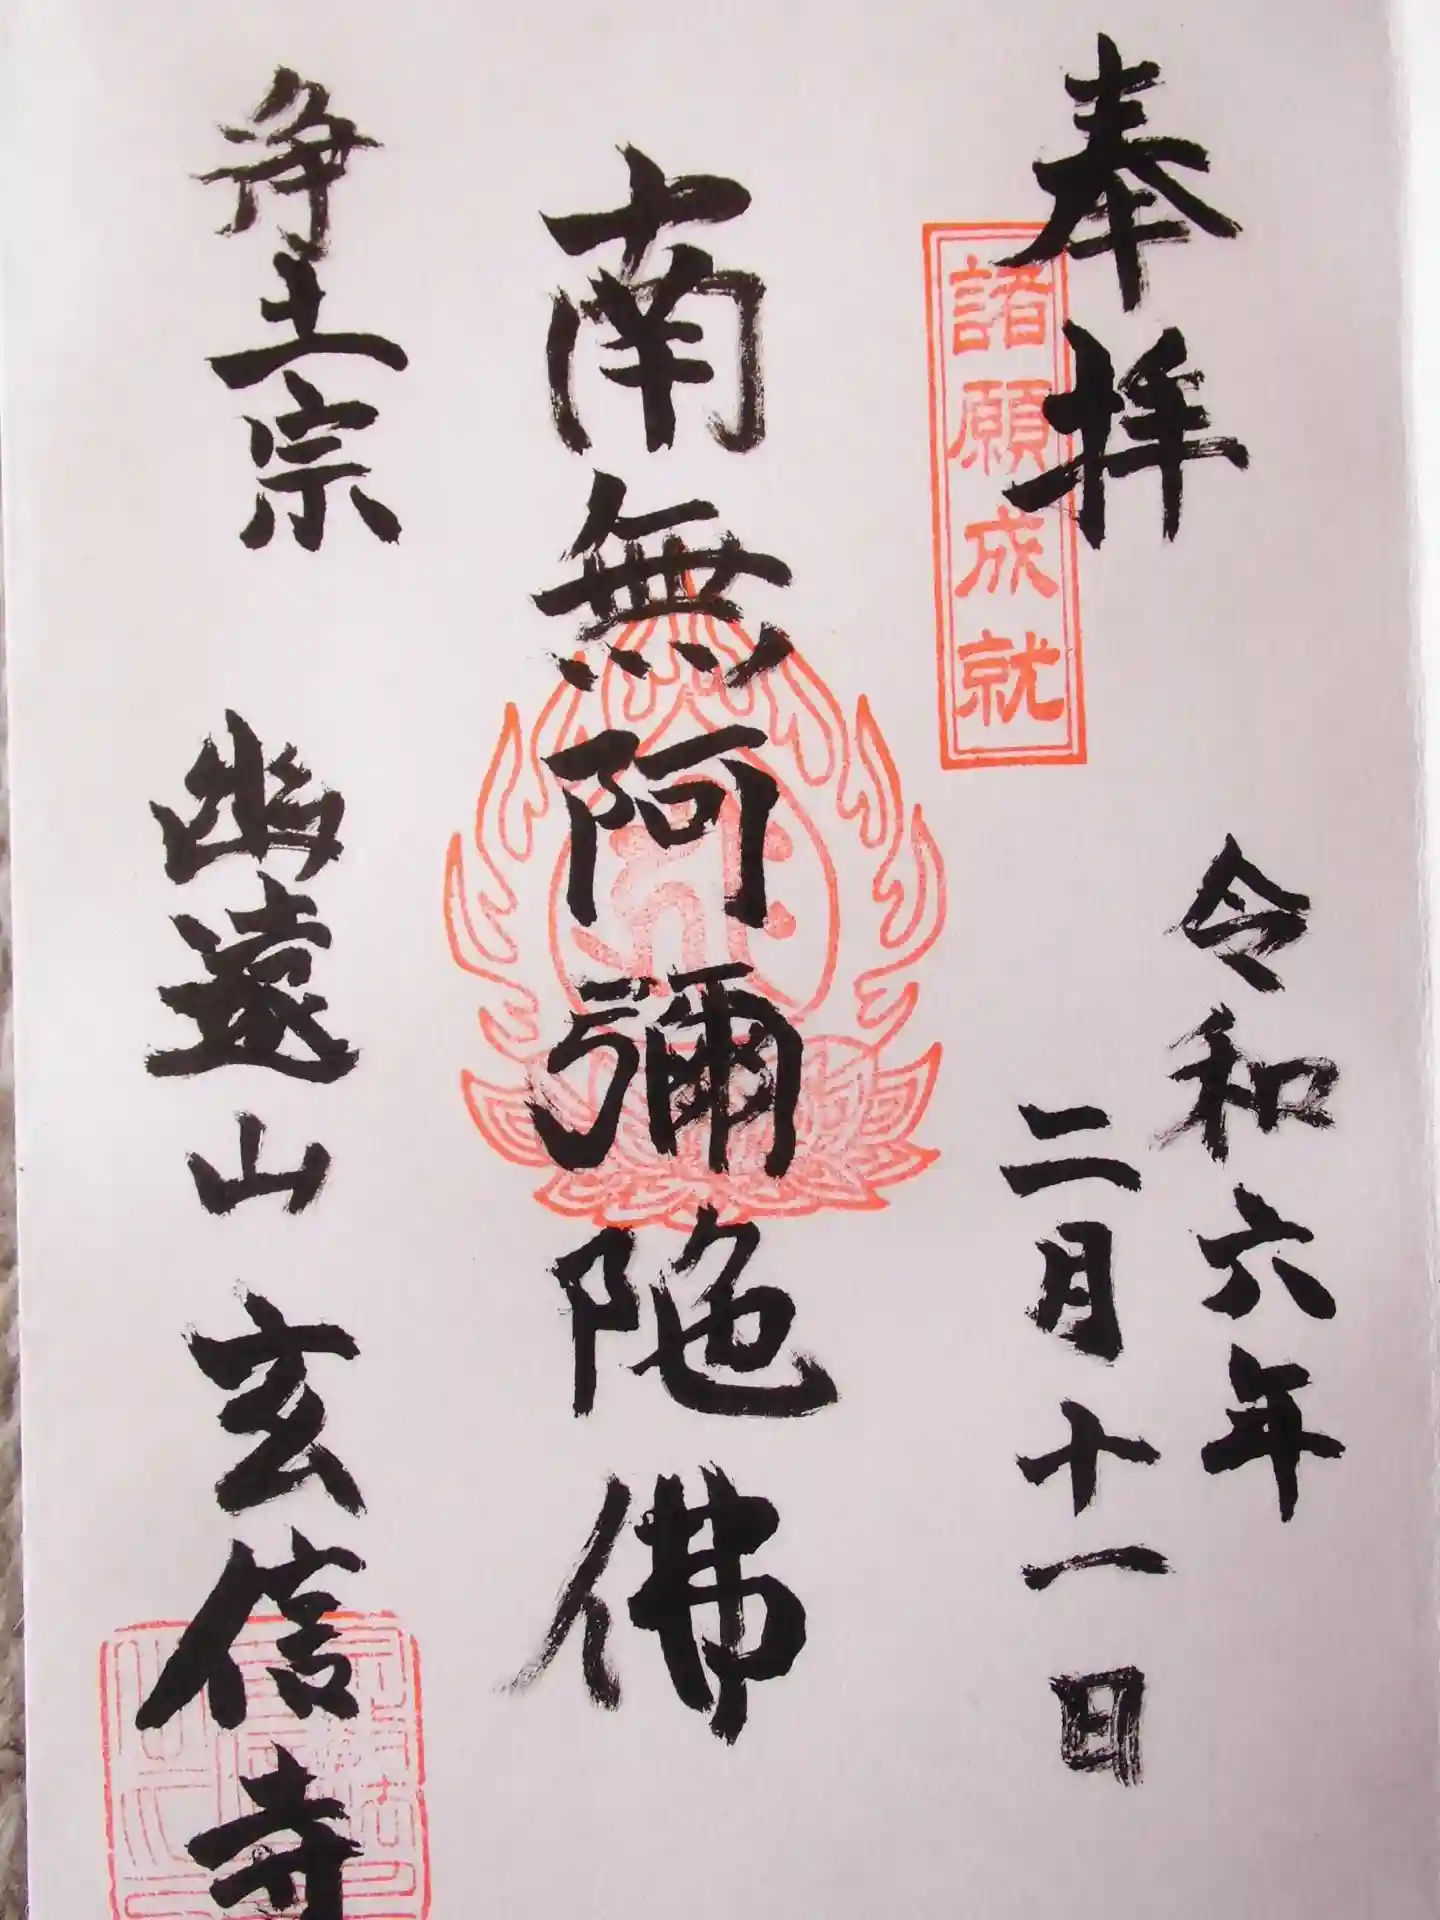 奉拝
諸願成就
令和六年
二月十一日
南無阿彌陀佛
浄土宗
幽遠山 玄信寺